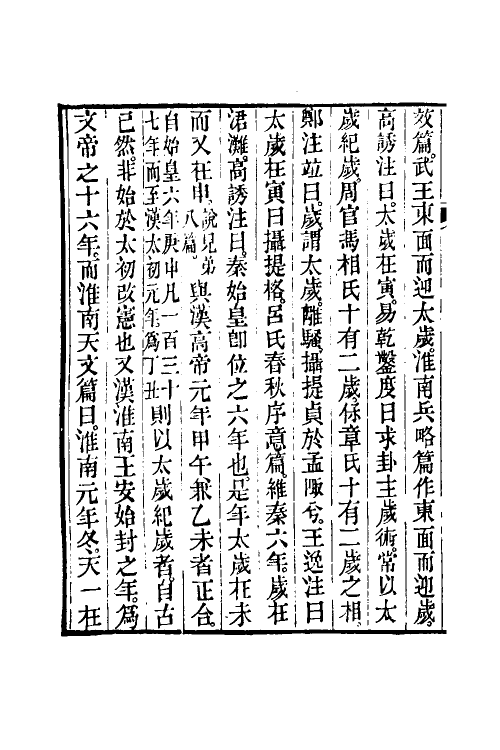 效篇。武王東面而迎太歲。淮南兵略篇作東面而迎歲。
高誘注曰。太歲在寅。易乾鑿度曰求卦主歲術。常以太
歲紀歲。周官馮相氏十有二歲。保章氏十有二歲之相。
鄭注竝曰。歲謂太歲。離騷。攝提貞於孟陬兮。王逸注曰
太歲在寅曰攝提格。呂氏春秋序意篇。維秦六年。歲在
涒灘。高誘注曰。秦始皇卽位之六年也。是年太歲在未
而又在申。說見弟八篇。與漢高帝元年甲午兼乙未者正合。
自始皇六年庚申凡一百三十七年而至漢太初元年。爲丁丑則以太歲紀歲者。自古
已然。非始於太初改憲也。又漢淮南王安始封之年。爲
文帝之十六年。而淮南天文篇曰。淮南元年冬。天一在